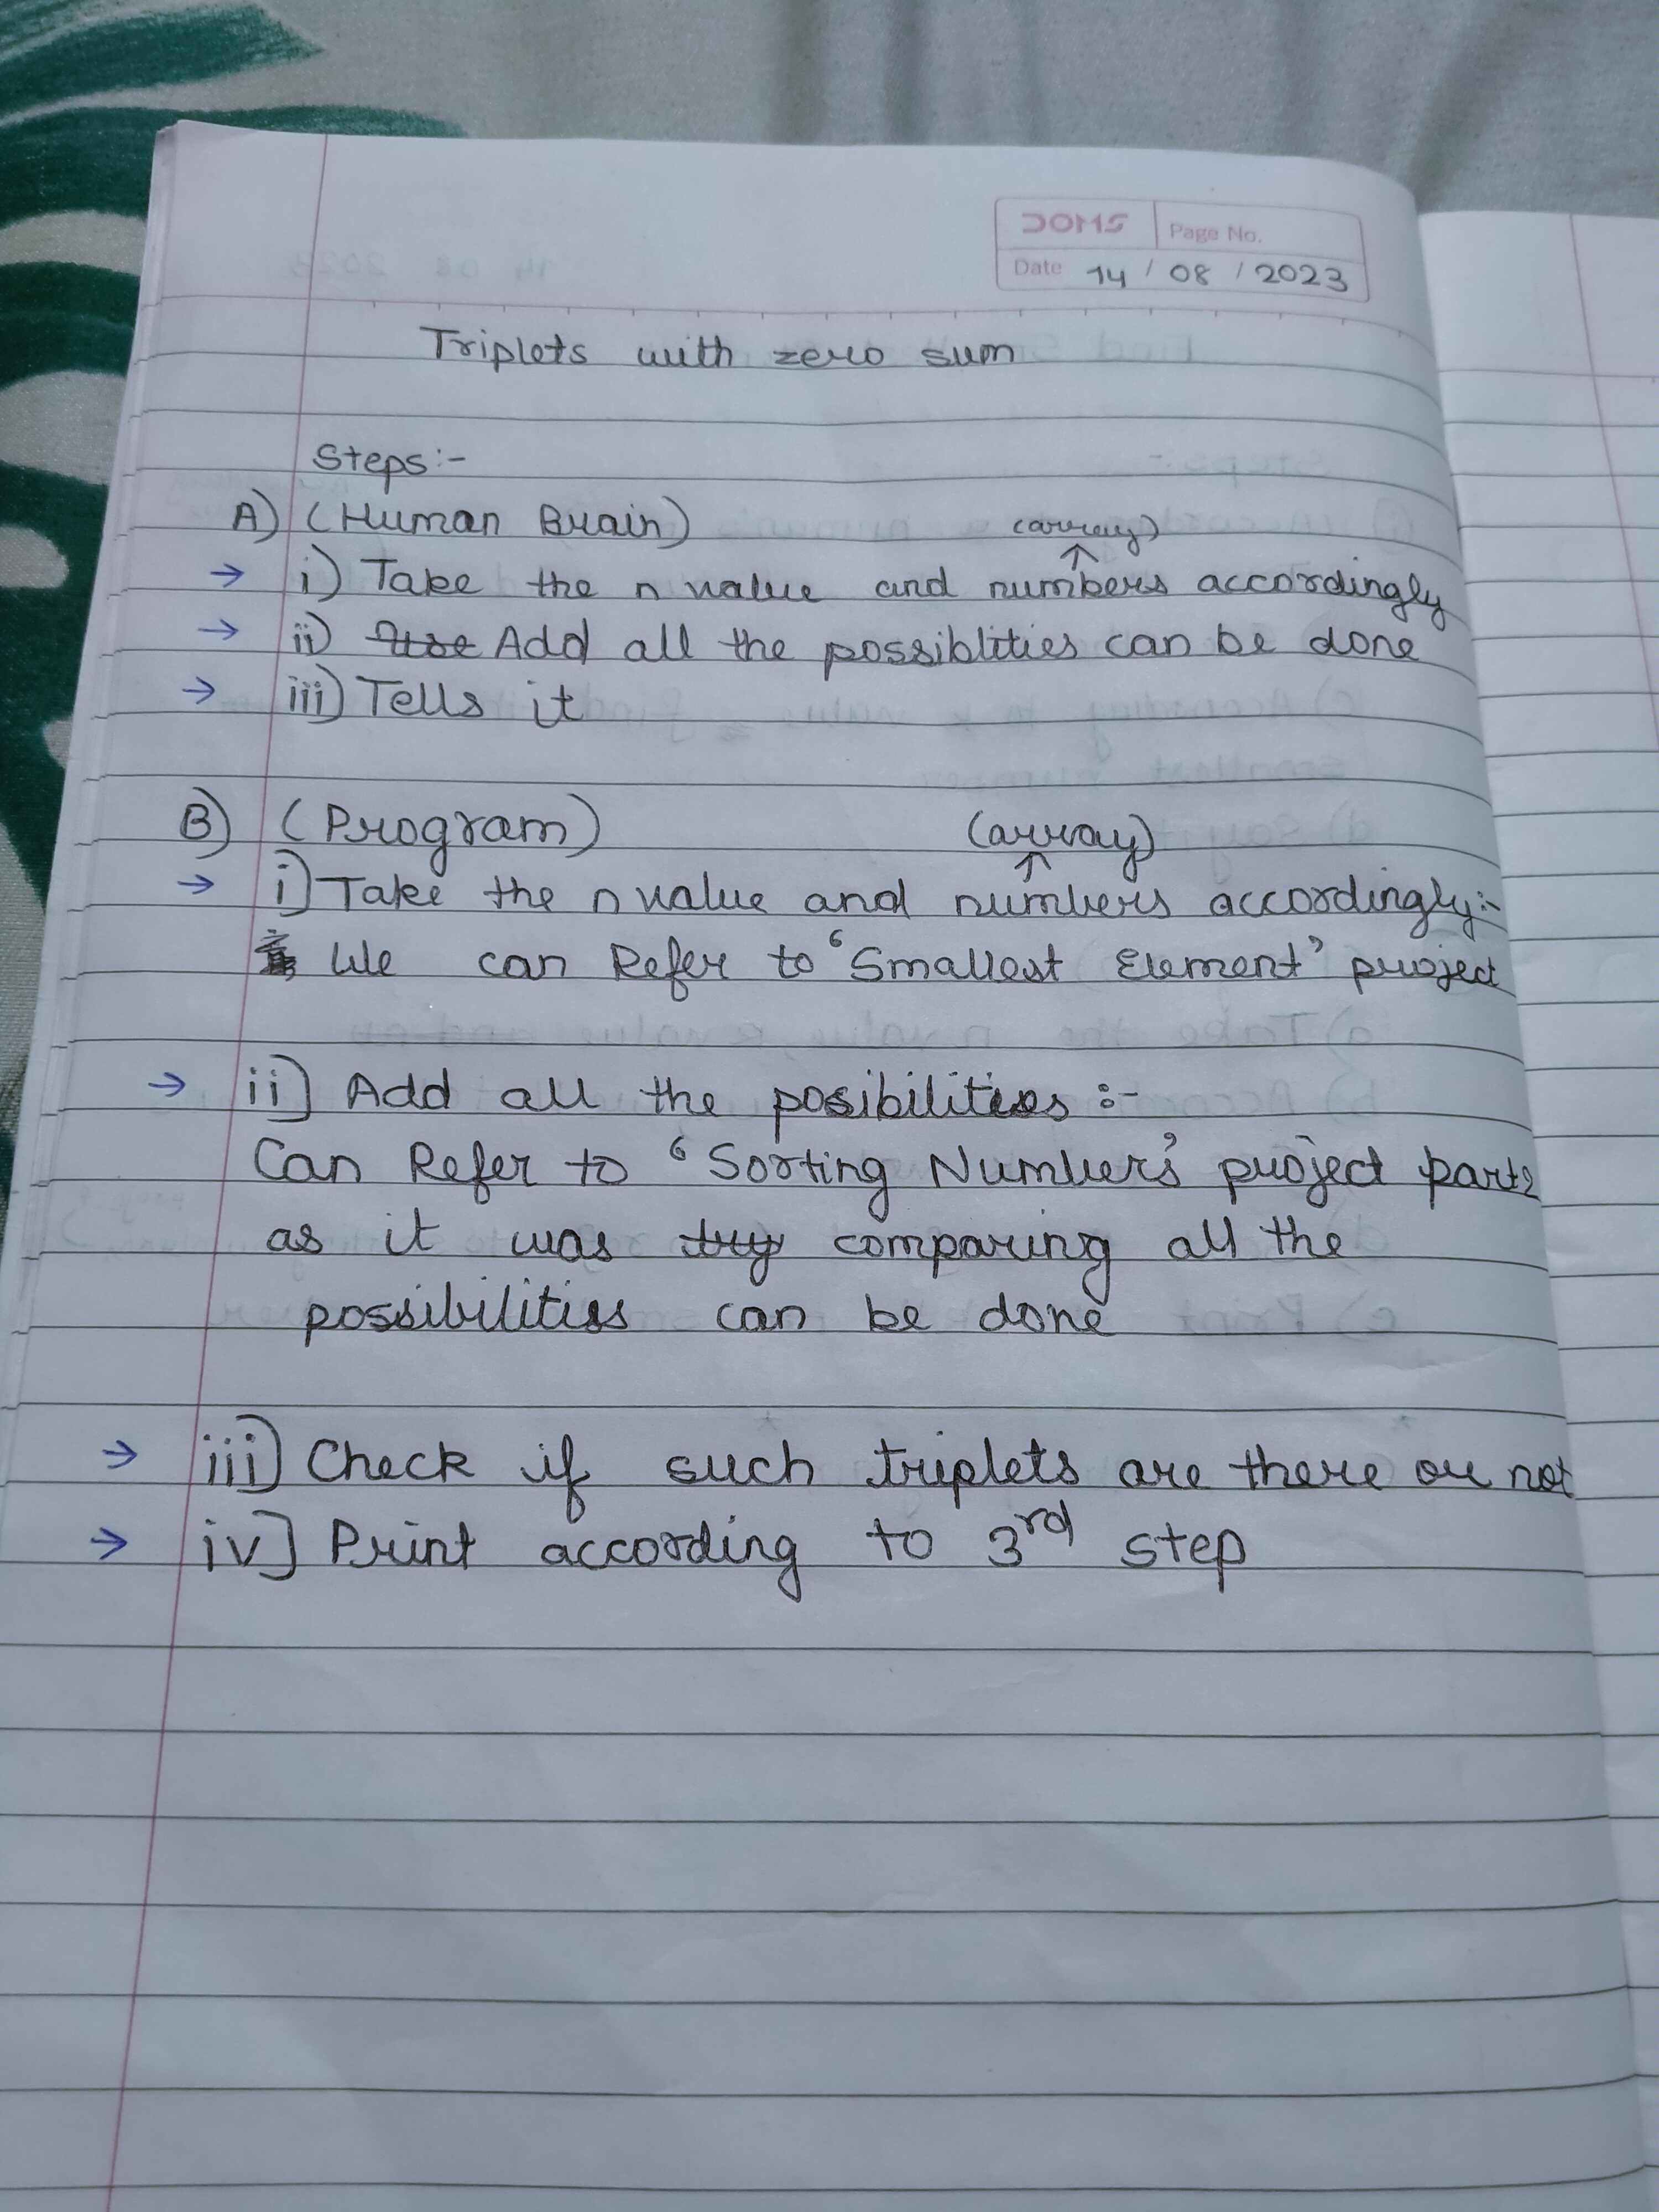 DOMS Page No.
Date 14 / 08 / 2023
Triplets with zero sum
Steps:-
A) (Human Brain)
(array)
↑
→ i) Take the n value and numbers accordingly
→ ii) Add all the possiblities can be done
→ iii) Tells it
B) (Program)
(array)
↑
→ i) Take the n value and numbers accordingly:-
We can Refer to 'Smallest Element' project
→ ii] Add all the posibilities :-
Can Refer to 'Sorting Numbers' project part2
as it was try comparing all the
possibilities can be done
→ iii] Check if such triplets are there or not
→ iv] Print according to 3rd step